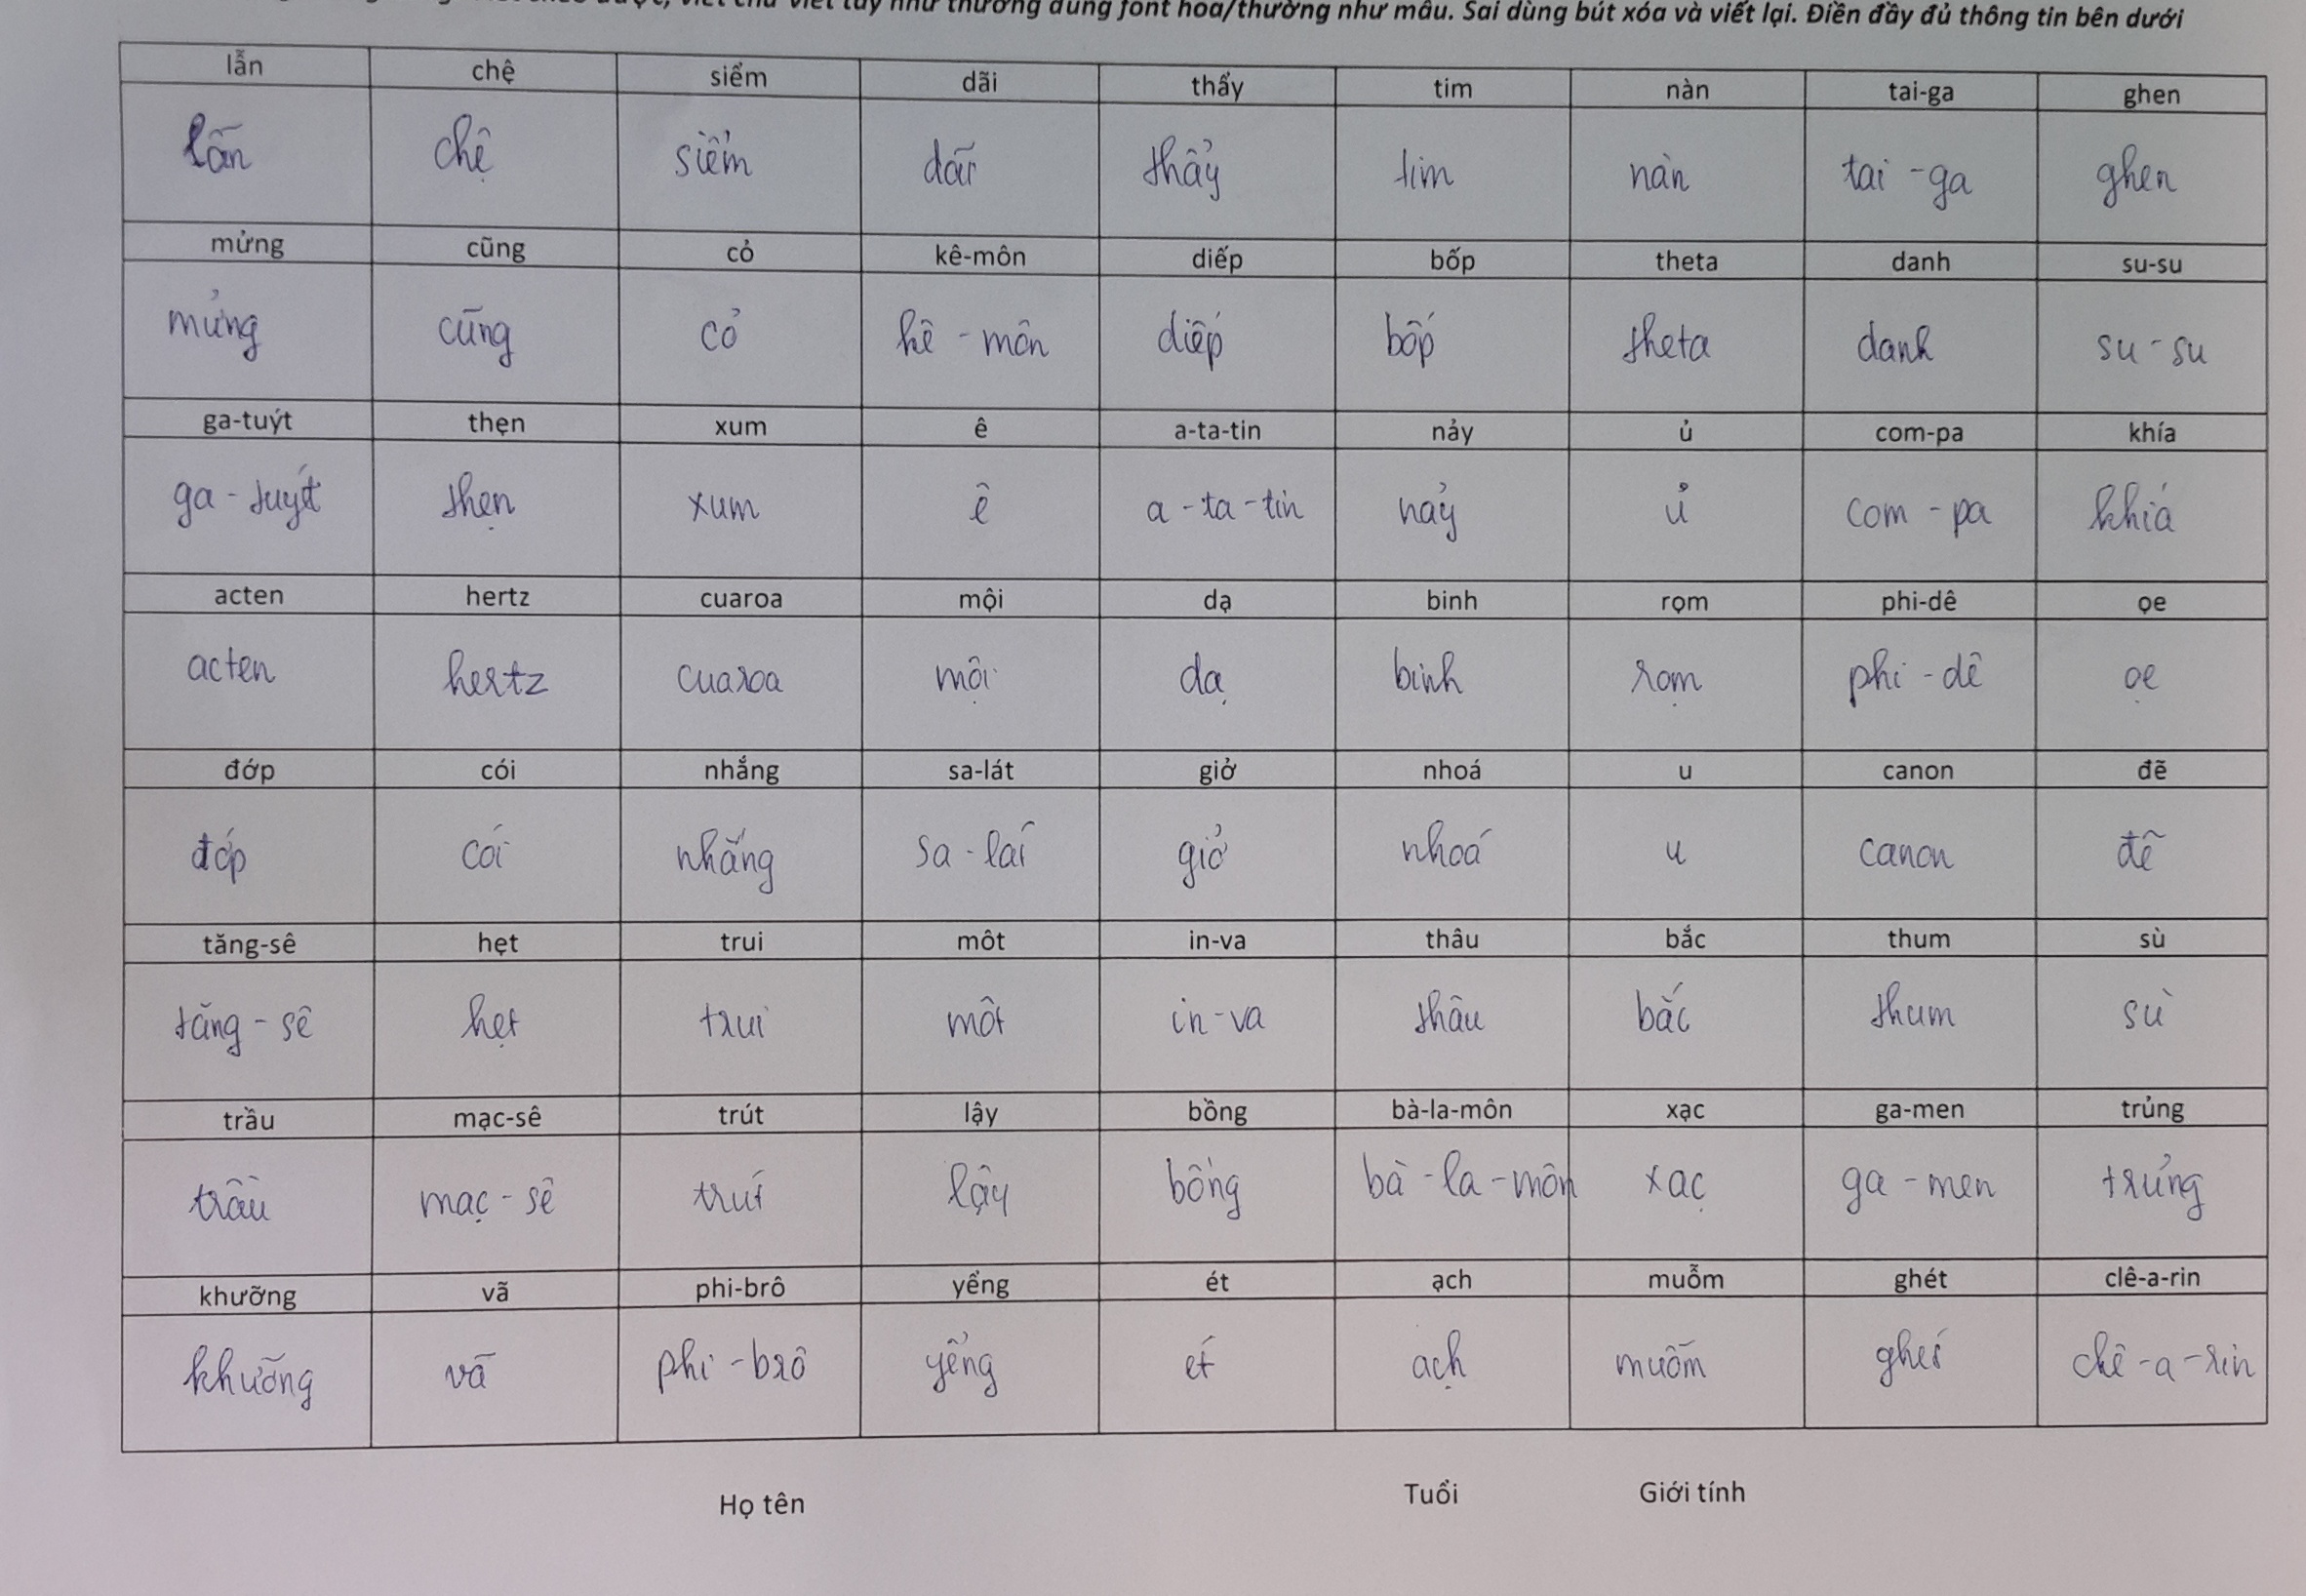 viết chữ viết tay như thường dùng font hoa/thường như mẫu. Sai dùng bút xóa và viết lại. Điền đầy đủ thông tin bên dưới
lẫn chệ siểm dãi thẩy tim nàn tai-ga ghen
lẫn chệ siểm dãi thẩy tim nàn tai-ga ghen
mửng cũng cỏ kê-môn diếp bốp theta danh su-su
mửng cũng cỏ kê-môn diếp bốp theta danh su-su
ga-tuýt thẹn xum ê a-ta-tin nảy ủ com-pa khía
ga-tuýt thẹn xum ê a-ta-tin nảy ủ com-pa khía
acten hertz cuaroa mội dạ binh rọm phi-dê ọe
acten hertz cuaroa mội dạ binh rọm phi-dê ọe
đớp cói nhắng sa-lát giở nhoá u canon đẽ
đớp cói nhắng sa-lát giở nhoá u canon đẽ
tăng-sê hẹt trui môt in-va thâu bắc thum sù
tăng-sê hẹt trui môt in-va thâu bắc thum sù
trầu mạc-sê trút lậy bồng bà-la-môn xạc ga-men trủng
trầu mạc-sê trút lậy bồng bà-la-môn xạc ga-men trủng
khưỡng vã phi-brô yểng ét ạch muỗm ghét clê-a-rin
khưỡng vã phi-brô yểng ét ạch muỗm ghét clê-a-rin
Họ tên Tuổi Giới tính